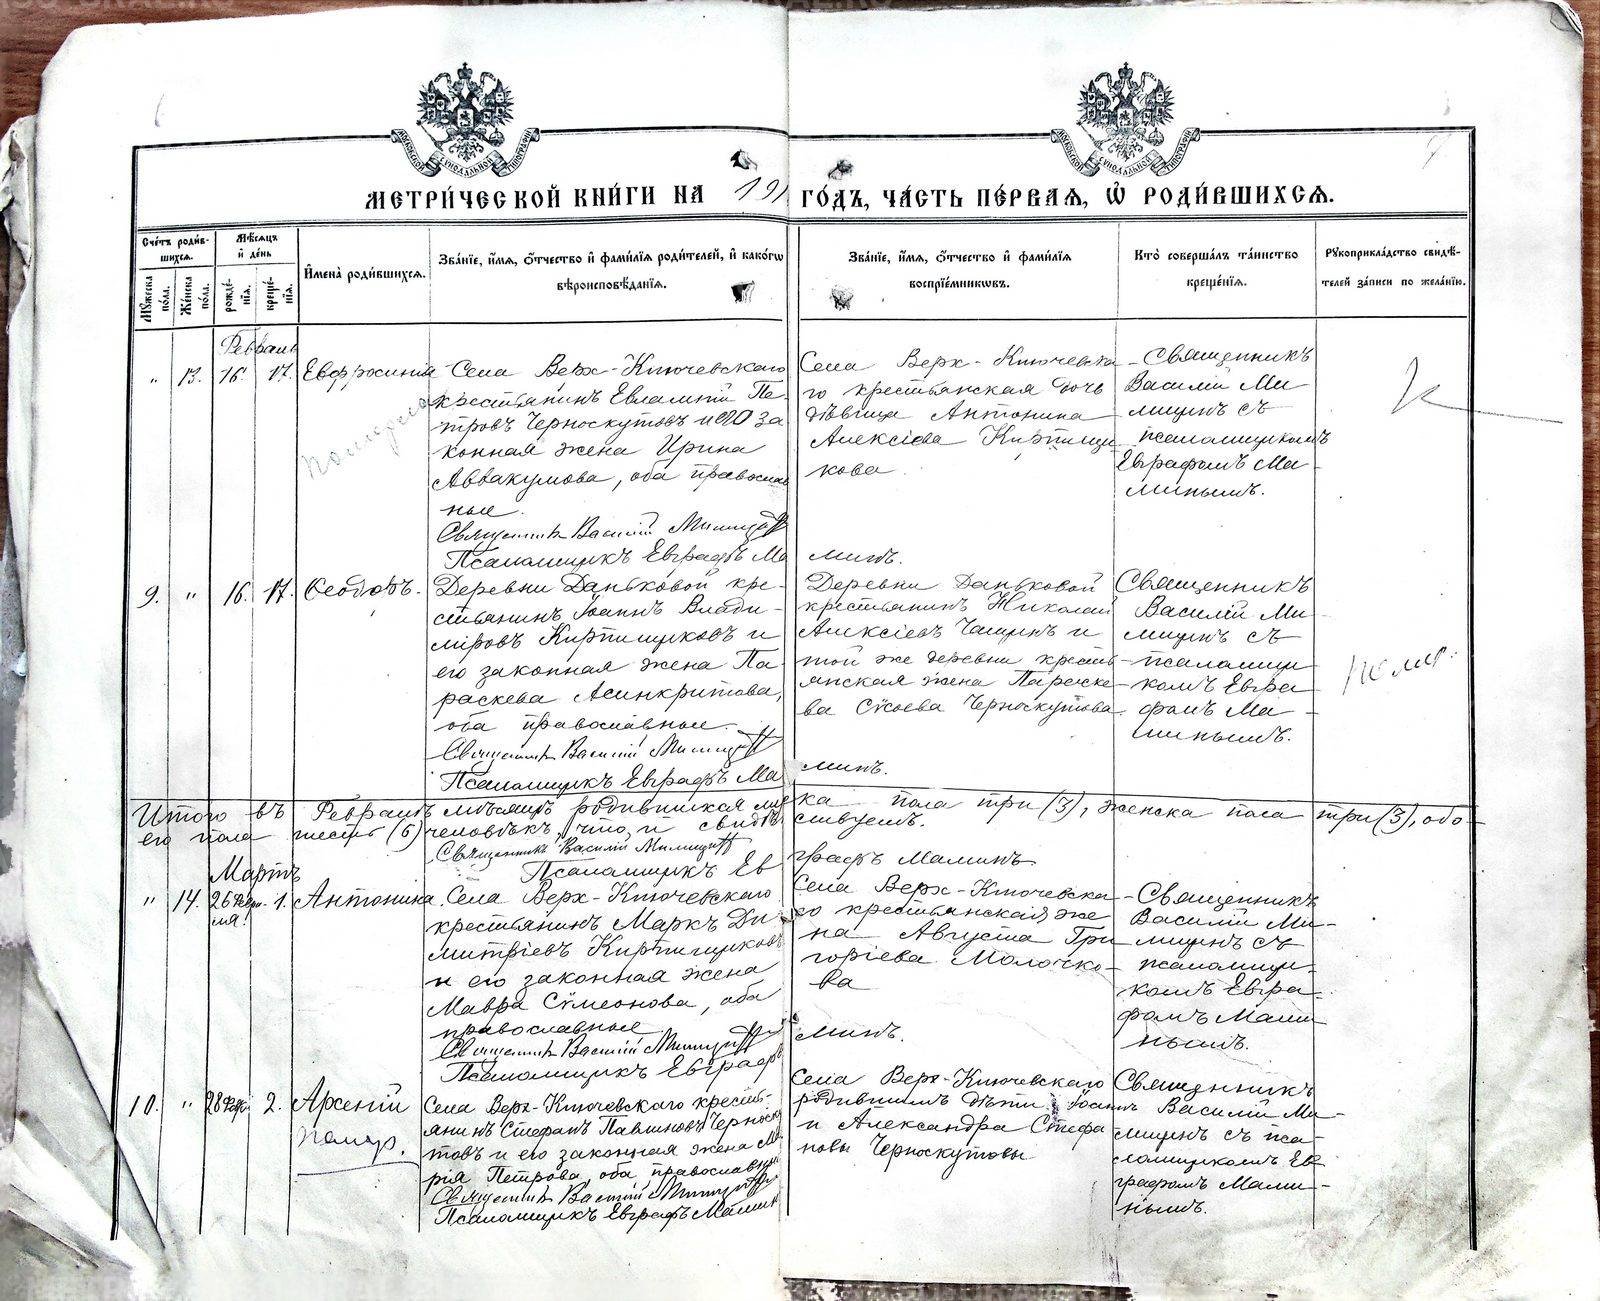 МЕТРИ́ЧЕСКОЙ КНИ́ГИ НА 191 ГО́ДЪ, ЧА́СТЬ ПЕ́РВАЯ, Ѡ҆ РОДИ́ВШИХСЯ.
Сче́тъ роди́в-
шихся.
Мꙋ́жеска по́ла.
Же́нска по́ла.
Мѣ́сяцъ
и҆ де́нь
рожде́-
нїя.
креще́-
нїя.
И҆мена̀ роди́вшихся.
Зва́нїе, и҆́мя, ѻ҆́тчество и҆ фами́лїя роди́телей, и҆ како́гѡ
вѣроисповѣ́данїя.
Зва́нїе, и҆́мя, ѻ҆́тчество и҆ фами́лїя
воспрїе́мникѡвъ.
Кто̀ соверша́лъ та́инство
креще́нїя.
Рꙋкоприкла́дство свидѣ́-
телей за́писи по жела́нїю.
Февраль
" 13. 16. 17. Евфросинія
Села Верх-Ключевскаго
крестьянинъ Евлампій Пе-
тровъ Черноскутовъ и его за
конная жена Ирина
Аввакумова, оба православ
ные.
Священник Василій Милицын
Псаломщикъ Евграфъ Ма минъ.
Села Верх-Ключевска
го крестьянская дочь
дѣвица Антонина
Алексіева Кирпищи
кова.
Священникъ
Василій Ми
лицынъ съ
псаломщикомъ
Евграфомъ Ма-
минымъ.
9. " 16. 17. Ѳеодотъ.
Деревни Даньковой кре-
стьянинъ Іоаннъ Влади-
міровъ Кирпищиковъ и
его законная жена Па-
раскева Асинкритова,
оба православные.
Священник Василій Милицын
Псаломщикъ Евграфъ Ма минъ.
Деревни Даньковой
крестьянинъ Николай
Алексіевъ Чащинъ и
той же деревни кресть
янская жена Параске-
ва Сѵсоева Черноскутова.
Священникъ
Василій Ми-
лицынъ съ
псаломщи
комъ Евгра
фомъ Ма-
минымъ.
помер.
Итого въ Февралѣ мѣсяцѣ родившихся муж ска пола три (3), женска пола три (3), обо-
его пола шесть (6) человѣкъ, что и свидѣтель ствуемъ.
Священникъ Василій Милицын
Псаломщикъ Ев графъ Маминъ
Мартъ
" 14. 26 Февра 1. Антонина.
ля.
Села Верх-Ключевскаго
крестьянинъ Маркъ Ди-
митріевъ Кирпищиковъ
и его законная жена
Мавра Сѵмеонова, оба
православные.
Священник Василій Милицын
Псаломщикъ Евграфъ минъ.
Села Верх-Ключевска
го крестьянская же
на Августа Гри
горіева Молочко-
ва
Священникъ
Василій Ми-
лицынъ съ
псаломщи-
комъ Евгра-
фомъ Мами
нымъ.
10. " 28 Фев. 2. Арсеній
помер.
Села Верх-Ключевскаго кресть-
янинъ Стефанъ Павлиновъ Черноску
товъ и его законная жена Ма
рія Петрова, оба православные
Священник Василій Милицын
Псаломщикъ Евграфъ Маминъ
Села Верх-Ключевскаго
родившимъ дѣти Іоаннъ
и Александра Стефа
новы Черноскутовы
Священникъ
Василій Ми-
лицынъ съ пса-
ломщикомъ Ев
графомъ Мами-
нымъ.